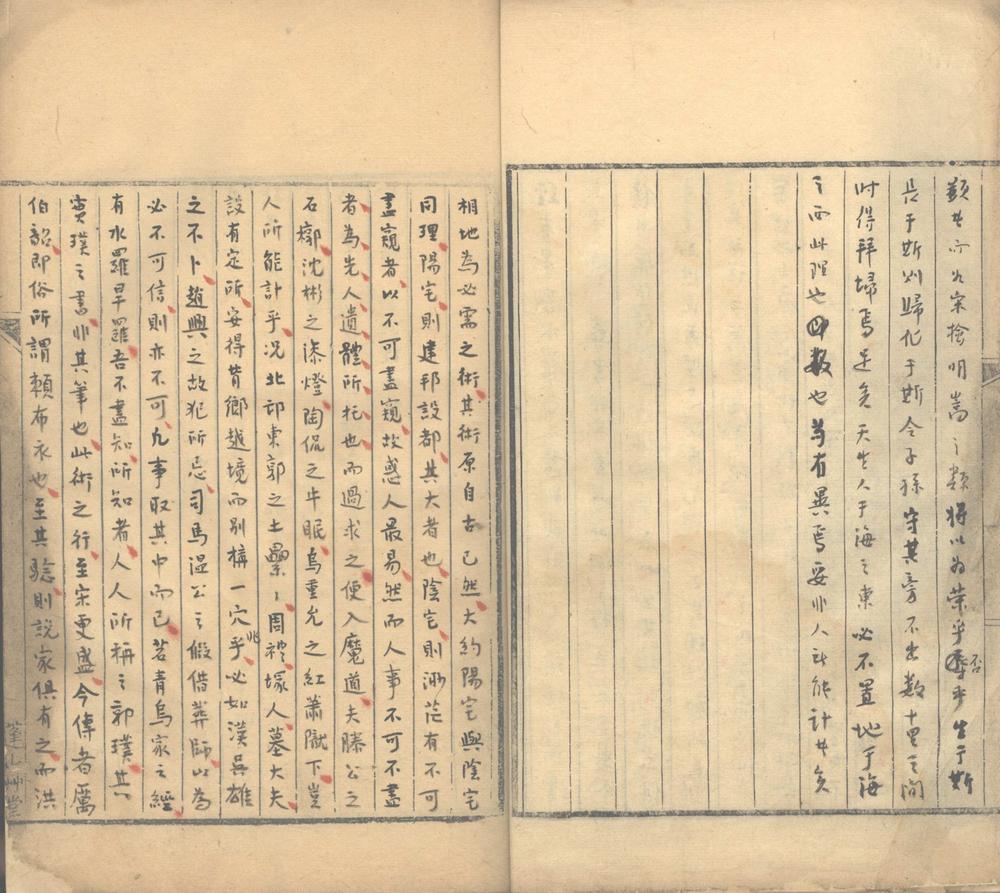 類者所以宋搶明嵩之類將以為榮乎辱乎否生于斯
長于斯刘歸化于斯令子孫守其旁不出数十里之间
时得拜埽焉足矣天生人于海之東必不置地于海
之西此理也即数也苟有異焉妥非人所能计者矣
相地為必需之術其術原自古已然大約陽宅與陰宅
同理陽宅則建邦設都其大者也陰宅則渺茫有不可
盡窺者以不可盡窺故惑人最易然而人事不可不盡
者為先人遺體所托也而過求之便入魔道夫滕公之
石槨沈彬之漆燈陶侃之牛眠烏重允之紅蕭隴下豈
人所能計乎况北邙東郭之土纍〻周禮塚人墓大夫
設有定所安得昔鄉越境而别構一穴乎必如漢吳雄
之不卜趙興之故犯所忌司馬温公之假借葬師以為
必不可信則亦不可凢事取其中而已若青烏家之經
有水羅旱羅吾不盡知所知者人人所稱之郭璞其
實璞之書非其筆也此術之行至宋更盛今傳者厲
伯韶即俗所謂賴布衣也至其驗則說家俱有之而洪